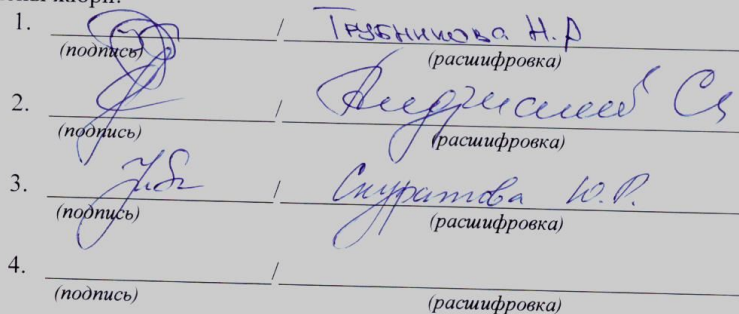 жюри:
1. / Трубникова Н.Р
(подпись) (расшифровка)
2. /
(подпись) (расшифровка)
3. / Скуратова Ю.Р.
(подпись) (расшифровка)
4. /
(подпись) (расшифровка)